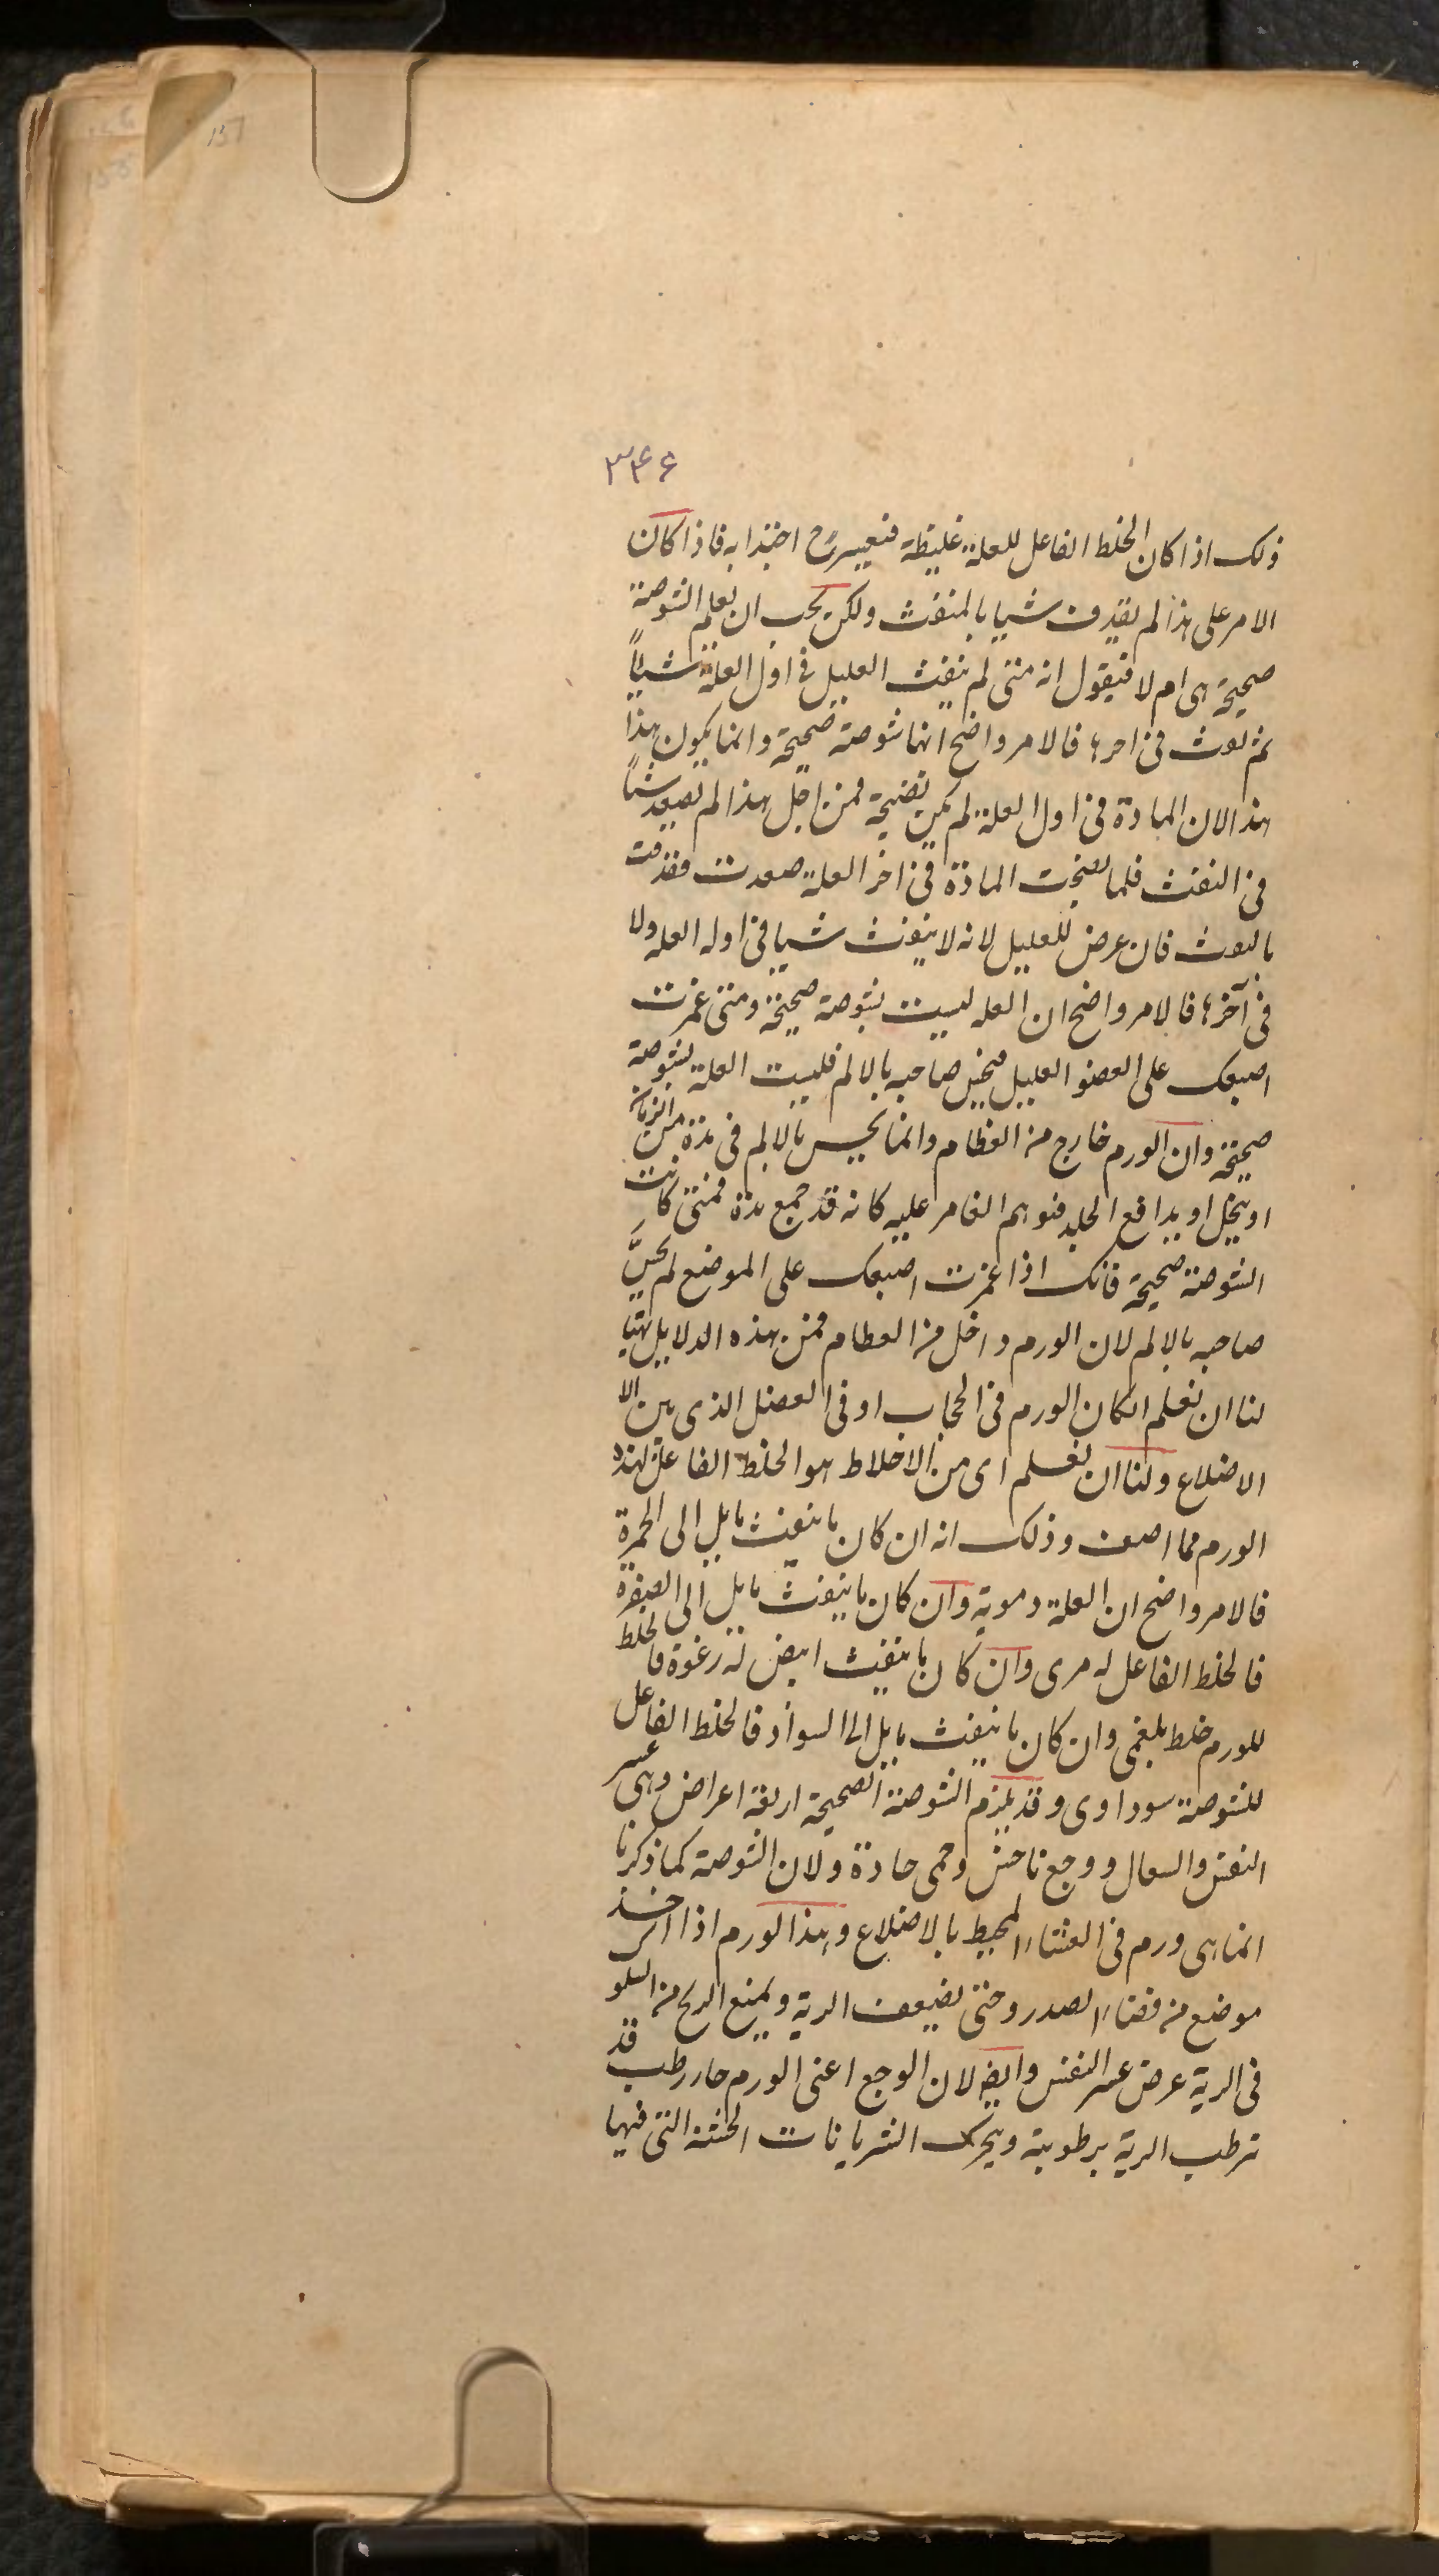 137
۳۴۶
ذلك اذا كان الخلط الفاعل للعلة غليظة فيعسر ح اجتذابه فاذا كان
الامر على هذا لم يقذف شيا بالنفث ولكن يجب ان نعلم الشوصة
صحيحة هى ام لا فنيقول انه متى لم ينفث العليل فى اول العلة شيأً
ثم نفث فى اخره فالامر واضح انها شوصة صحيحة وانما يكون هذا
هذا لان المادة فى اول العلة لم يكن نضيجة فمن اجل هذا لم تصعد شيأً
فى النفث فلما نضجت المادة فى اخر العلة صعدت وقذفت
بالنفث فان عرض للعليل لانه لا ينفث شيا فى اوله العله ولا
فى آخره فالامر واضح ان العله ليست بشوصة صحيحة ومتى غمزت
اصبعك على العضو العليل فيحس صاحبه بالالم فليست العلة بشوصة
صحيحة وان الورم خارج من العظام وانما يحس بالالم فى مدة من الزمان
او يتحلل او يدافع الجلد فتوهم الغامر عليه كانه قد جمع مدة فمتى كانت
الشوصة صحيحة فانك اذا غمزت اصبعك على الموضع لم يحسَّ
صاحبه بالالم لان الورم داخل من العظام فمن هذه الدلايل تهيا
لنا ان نعلم ان كان الورم فى الحجاب او فى العضل الذى بين الا
الاضلاع ولنا ان نعلم اى من الاخلاط هو الخلط الفاعل لهذا
الورم مما اصف وذلك انه ان كان ما ينفث مايل الى الحمرة
فالامر واضح ان العلة دموية وان كان ما ينفث مايل الى الصفرة
فالخلط الفاعل له مرى وان كان ما ينفث ابيض له رغوة فالخلط
للورم خلط بلغمى وان كان ما ينفث مايل الى السواد فالخلط الفاعل
للشوصة سوداوى وقد يلزم الشوصة الصحيحة اربعة اعراض وهى عسر
النفس والسعال ووجع ناخس وحمى حادة ولان الشوصة كما ذكرنا
انما هى ورم فى الغشاء المحيط بالاضلاع وهذا الورم اذا اخذ
موضع من فضاء الصدر وحتى يضيعف الرية ويمنع الريح من
فى الرية عرض عسر النفس وايضا لان الوجع اعنى الورم حار رطب قد
ترطب الرية برطوبة ويحرك الشريانات الخشنة التى فيها